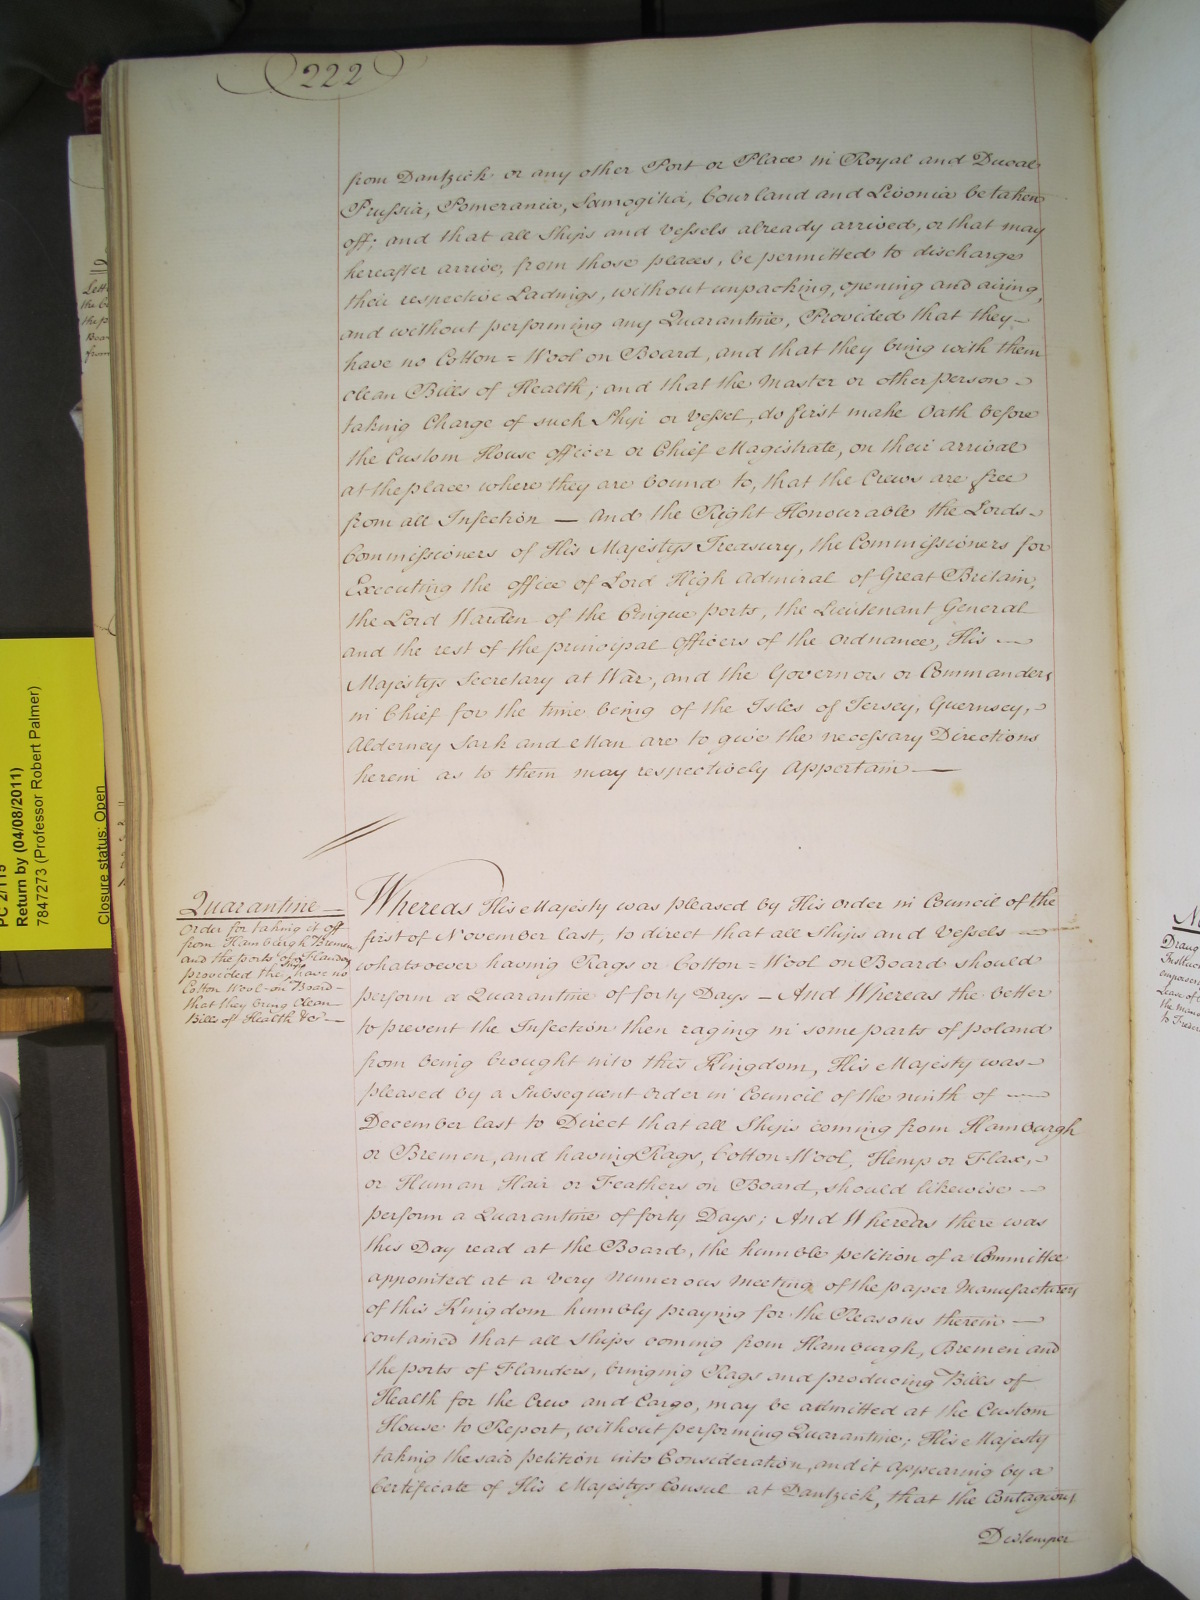 222
from Dantzick or any other Port or Place in Royal and Ducal
Prussia, Pomerania, Samogitia, Courland and Livonia be taken
off; and that all Ships and Vessels already arrived, or that may
hereafter arrive, from those places, be permitted to discharge
their respective Ladings, without unpacking, opening and airing,
and without performing any Quarantine, Provided that they
have no Cotton = Wool on Board, and that they bring with them
clean Bills of Health; and that the Master or other person
taking Charge of such Ship or Vessel, do first make Oath before
the Custom House officer or Chief Magistrate, on their arrival
at the place where they are bound to, that the Crews are free
from all Infection — And the Right Honourable the Lords
Commissioners of His Majestys Treasury, the Commissioners for
Executing the office of Lord High Admiral of Great Britain,
the Lord Warden of the Cinque ports, the Lieutenant General
and the rest of the principal Officers of the Ordnance, His
Majestys Secretary at War, and the Governors or Commanders
in Chief for the time being of the Isles of Jersey, Guernsey,
Alderney Sark and Man are to give the necessary Directions
herein as to them may respectively Appertain —
Quarantine
Order for taking it off
from Hamburgh Bremen
and the ports of Flanders
provided the Ships have no
Cotton Wool on Board
that they bring Clean
Bills of Health &c
Whereas His Majesty was pleased by His Order in Council of the
first of November last, to direct that all Ships and Vessels
whatsoever having Rags or Cotton = Wool on Board should
perform a Quarantine of forty Days — And Whereas the better
to prevent the Infection then raging in some parts of Poland
from being brought into this Kingdom, His Majesty was
pleased by a Subsequent Order in Council of the ninth of
December last to Direct that all Ships coming from Hamburgh
or Bremen, and having Rags, Cotton Wool, Hemp or Flax,
or Human Hair or Feathers on Board, should likewise
perform a Quarantine of forty Days; And Whereas there was
this Day read at the Board, the humble petition of a Committee
appointed at a very numerous Meeting of the paper Manufacturers
of this Kingdom humbly praying for the Reasons therein
contained that all Ships coming from Hamburgh, Bremen and
the ports of Flanders, bringing Rags and producing Bills of
Health for the Crew and Cargo, may be admitted at the Custom
House to Report, without performing Quarantine; His Majesty
taking the said petition into Consideration, and it appearing by a
Certificate of His Majestys Consul at Dantzick, that the Contagious
Distemper
Return by (04/08/2011)
7847273 (Professor Robert Palmer)
Closure status: Open